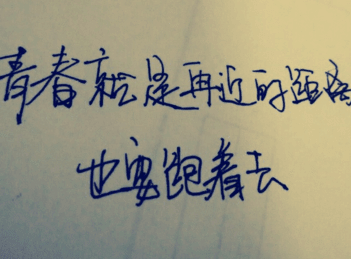 青春就是再近的道路
也要跑着去